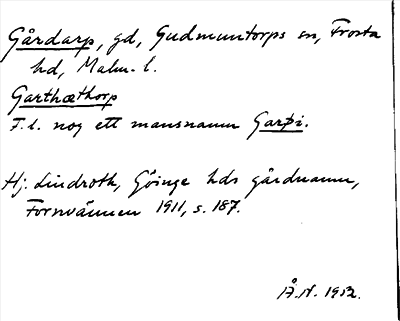 Gårdarp, gd, Gudmuntorps sn, Frosta
hd, Malm. l.
Garthæthorp
F. l. nog ett mansnamn Garþi.
Hj. Lindroth, Göinge hds gårdnamn,
Fornvännen 1911, s. 187.
Å. N. 1952.